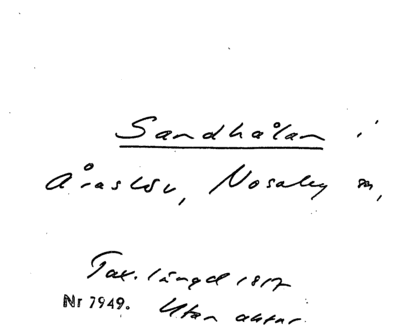 Sandhålan i
Åraslöv, Nosaby sn,
Tax. längd 1817
Nr 7949. Utan